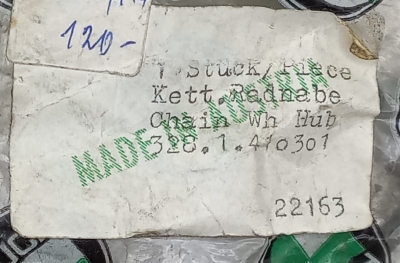 120.-
1 Stuck/Piece
Kett.Radnabe
Chain Wh Hub
328.1.41o3o1
MADE IN AUSTRIA
22163